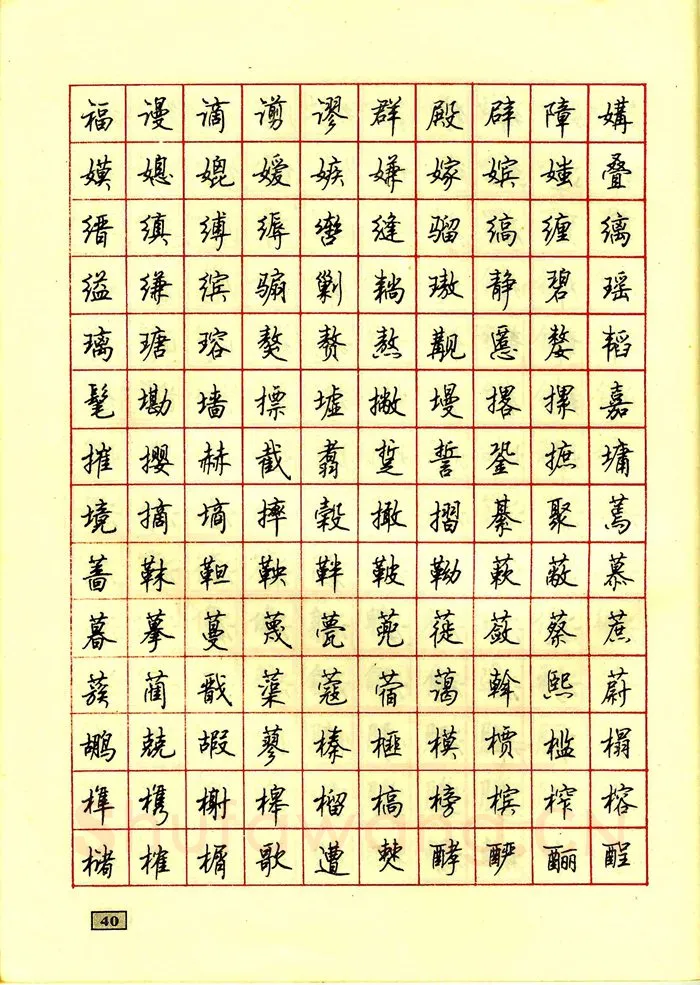 福 谩 谪 谫 谬 群 殿 辟 障 媾
嫫 媳 媲 嫒 嫉 嫌 嫁 嫔 媸 叠
缙 缜 缚 缛 辔 缝 骝 缟 缠 缡
缢 缣 缤 骟 剿 耥 璈 静 碧 瑶
璃 瑭 瑢 獒 赘 熬 觏 慝 嫠 韬
髦 墈 墙 摽 墟 撇 墁 撂 摞 嘉
摧 撄 赫 截 翥 踅 誓 銎 摭 墉
境 摘 墒 摔 榖 撖 摺 綦 聚 蔫
蔷 靺 靼 鞅 靽 鞁 靿 蔌 蔽 慕
暮 摹 蔓 蔑 甍 蔸 蓰 蔹 蔡 蔗
蔟 蔺 戬 蕖 蔻 蓿 蔼 斡 熙 蔚
鹕 兢 嘏 蓼 榛 榧 模 槚 槛 榻
榫 槜 榭 槔 榴 槁 榜 槟 榨 榕
槠 榷 榍 歌 遭 僰 酵 酽 酾 酲
40